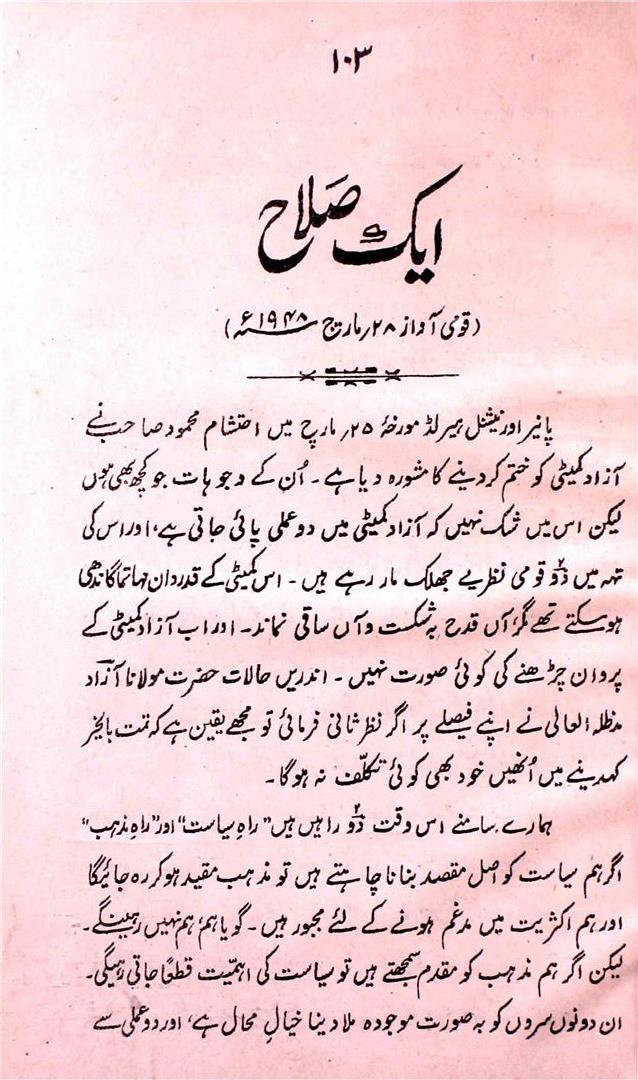 ۱۰۳
ایک صلاح
(قومی آواز ۲۸؍ مارچ ۱۹۴۸ء)
پانیر اور نیشنل ہیرلڈ مورخۂ ۲۵؍ مارچ میں احتشام محمود صاحب نے
آزاد کمیٹی کو ختم کر دینے کا مشورہ دیا ہے۔ اُن کے وجوہات جو کچھ بھی ہوں
لیکن اس میں شک نہیں کہ آزاد کمیٹی میں دو عملی پائی جاتی ہے، اور اس کی
تہہ میں دو۲ قومی نظریے جھلک مار رہے ہیں۔ اس کمیٹی کے قدردان مہاتما گاندھی
ہو سکتے تھے مگر آں قدح بہ شکست و آں ساقی نماند۔ اور اب آزاد کمیٹی کے
پروان چڑھنے کی کوئی صورت نہیں۔ اندریں حالات حضرت مولانا آزاد
مدظلہ العالی نے اپنے فیصلے پر اگر نظر ثانی فرمائی تو مجھے یقین ہے کہ تمت بالخیر
کہدینے میں اُنھیں خود بھی کوئی تکلّف نہ ہوگا۔
ہمارے سامنے اس وقت دو۲ راہیں ہیں "راہِ سیاست" اور "راہِ مذہب"
اگر ہم سیاست کو اصل مقصد بنانا چاہتے ہیں تو مذہب مقید ہو کر رہ جائیگا
اور ہم اکثریت میں مدغم ہونے کے لئے مجبور ہیں۔ گویا ہم، ہم نہیں رہینگے۔
لیکن اگر ہم مذہب کو مقدم سمجھتے ہیں تو سیاست کی اہمیّت قطعًا جاتی رہیگی۔
ان دونوں سروں کو بہ صورت موجودہ ملا دینا خیالِ محال ہے، اور دو عملی سے